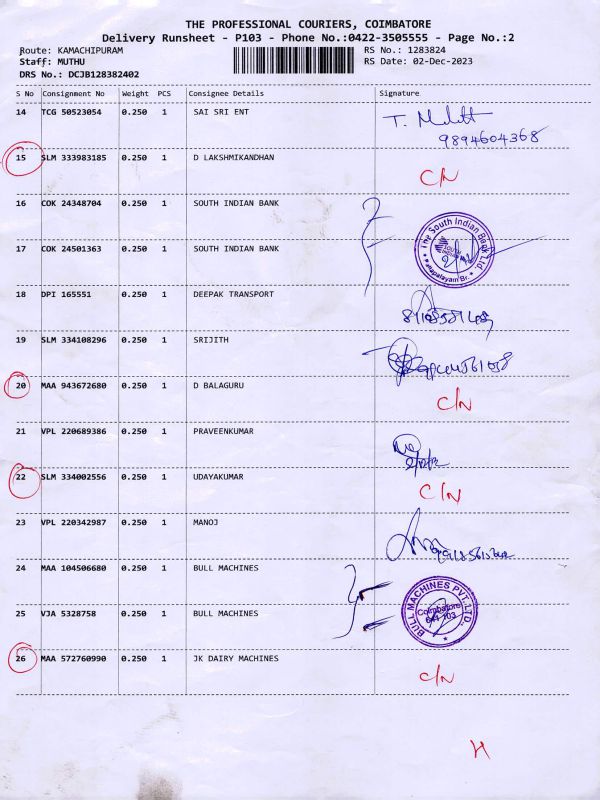 THE PROFESSIONAL COURIERS, COIMBATORE
Delivery Runsheet - P103 - Phone No.:0422-3505555 - Page No.:2
Route: KAMACHIPURAM RS No.: 1283824
Staff: MUTHU RS Date: 02-Dec-2023
DRS No.: DCJB128382402
S No Consignment No Weight PCS Consignee Details Signature
14 TCG 50523054 0.250 1 SAI SRI ENT
9894604368
15 SLM 333983185 0.250 1 D LAKSHMIKANDHAN C/N
16 COK 24348704 0.250 1 SOUTH INDIAN BANK
The South Indian Bank Ltd.
17 COK 24501363 0.250 1 SOUTH INDIAN BANK
18 DPI 165551 0.250 1 DEEPAK TRANSPORT
19 SLM 334108296 0.250 1 SRIJITH
20 MAA 943672680 0.250 1 D BALAGURU C/N
21 VPL 220689386 0.250 1 PRAVEENKUMAR
22 SLM 334002556 0.250 1 UDAYAKUMAR C/N
23 VPL 220342987 0.250 1 MANOJ
24 MAA 104506680 0.250 1 BULL MACHINES
BULL MACHINES PVT. LTD.
Coimbatore
641 103
25 VJA 5328758 0.250 1 BULL MACHINES
26 MAA 572760990 0.250 1 JK DAIRY MACHINES C/N
H